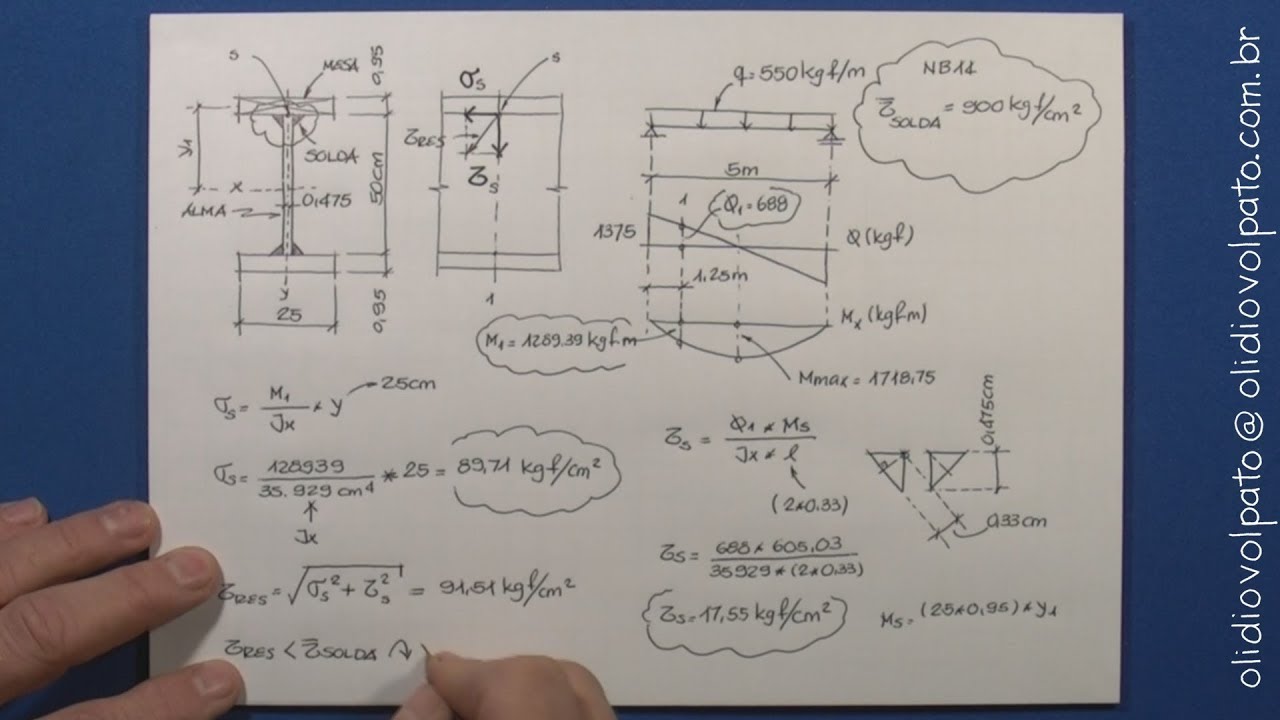 S
MESA
0,95
SOLDA
y1
50cm
x
0,475
ALMA
y
25
0,95
σs
s
τRES
τs
1
q=550kgf/m
5m
1
Q1=688
1375
Q (kgf)
1,25m
Mx (kgfm)
M1=1289.39 kgfm
Mmax=1718,75
NB14
τ̅SOLDA = 900 kgf/cm²
σs = M1/Jx * y
25cm
σs = 128939/35.929 cm⁴ * 25 = 89,71 kgf/cm²
Jx
τRES = √(σs² + τs²) = 91,51 kgf/cm²
τRES < τ̅SOLDA
τs = Q1 * Ms/Jx * l
(2*0.33)
0,475cm
0,33cm
τs = 688 * 605,03/35929 * (2*0.33)
τs = 17,55 kgf/cm²
Ms = (25*0,95) * y1
olidiovolpato@olidiovolpato.com.br